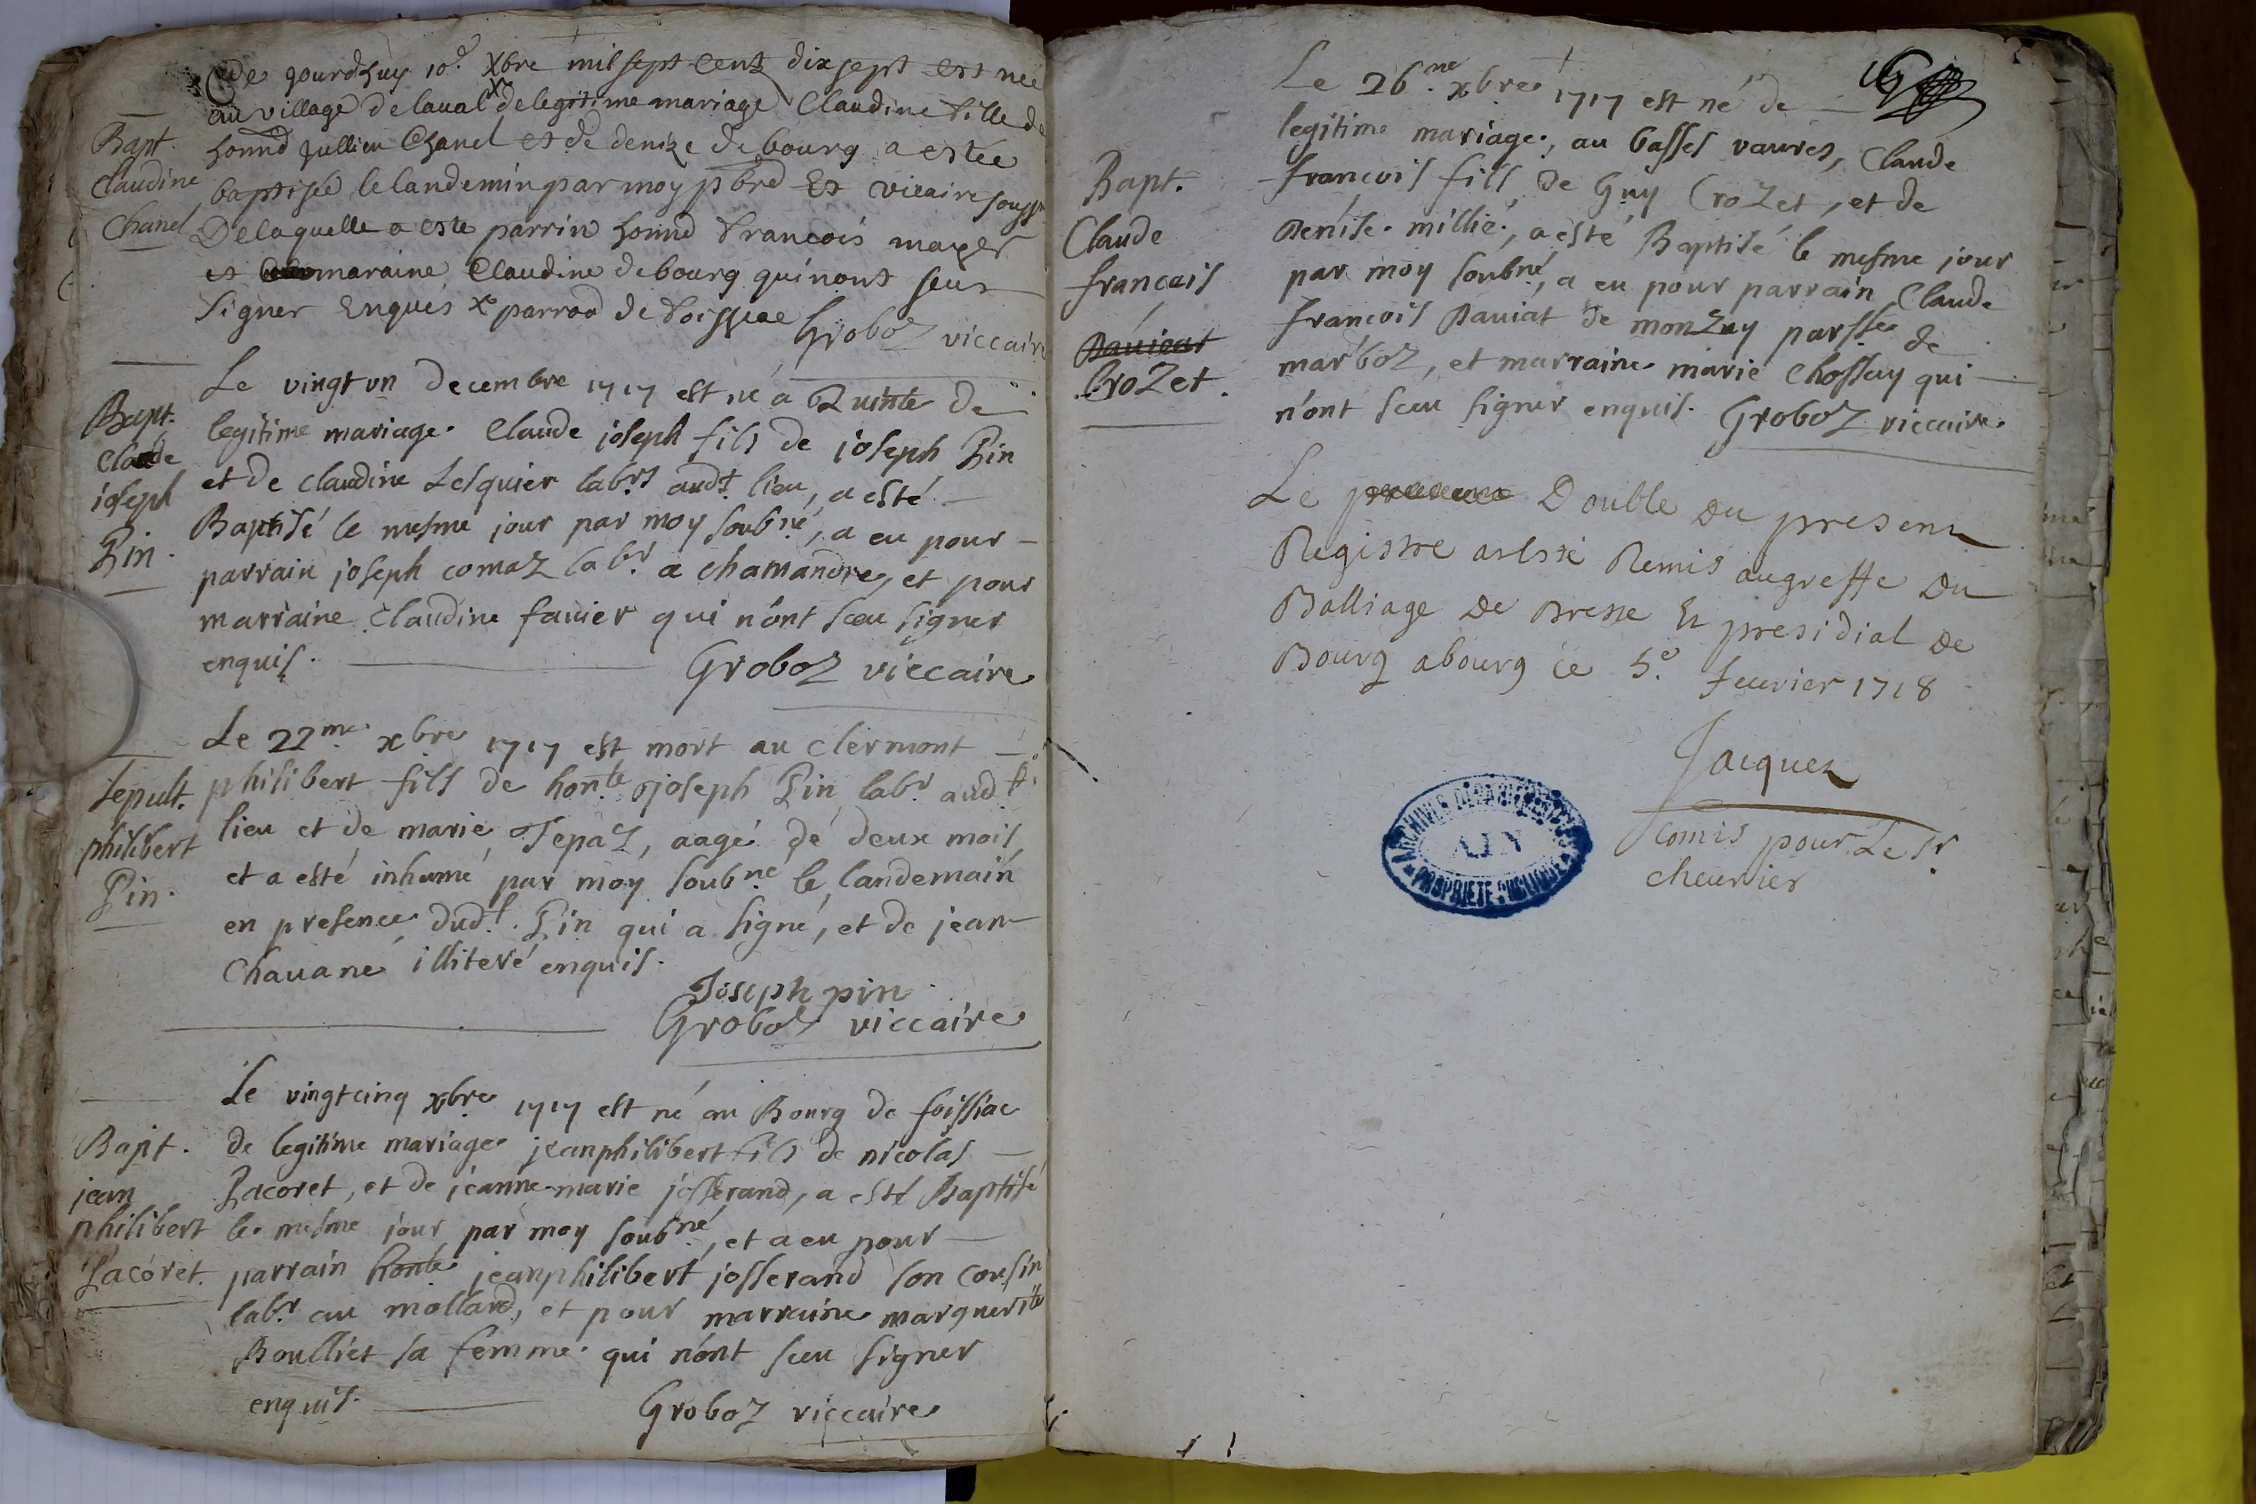 Ce jourdhuy 10e. Xbre mil sept cent dix sept est née
au village de laual de legitime mariage Claudine fille de
honnd jullien Chanel et de denize debourg a estée
baptisée le landemin par moy pbre Et vicaire soussne
Delaquelle a este parrin honnd francois mayer
et maraine Claudine debourg qui nont seus
signer Enquis parroo de foissiae
Groboz viccaire
Bapt.
Claudine
Chanel
Le vingt un decembre 1717 est né a Quinte de
legitime mariage. Claude joseph fils de joseph Pin
et de claudine Lesquier labrs. audt. lieu, a esté
Baptisé le mesme jour par moy soubné, a eu pour
parrain joseph comaz labr. a chamandre, et pour
marraine Claudine fauier qui n'ont sceu signer
enquis.
Groboz viccaire
Bapt.
Claude
joseph
Pin.
Le 22me. xbre 1717 est mort au clermont
philibert fils de honte. joseph Pin labr. audt.
lieu et de marie Tepaz, aagé de deux mois
et a esté inhumé par moy soubné le landemain
en presence dudt. Pin qui a signé, et de jean
Chauane illiteré enquis.
Joseph pin
Groboz viccaire
Sepult.
philibert
Pin.
Le vingtcinq xbre 1717 est né au Bourg de foissiac
de legitime mariage jeanphilibert fils de nicolas
Pacoret, et de jeanne-marie josserand, a esté Baptisé
le mesme jour par moy soubné, et a eu pour
parrain honte. jeanphilibert josserand son cousin
labr. au mollard, et pour marraine marguerite
Boulliet sa femme. qui n'ont sceu signer
enquis.
Groboz viccaire
Bapt.
jean
philibert
Pacoret.
Le 26.me xbre 1717 est né de
legitime mariage, au basses vaures, Claude
françois fils de Guy Crozet, et de
Denise. millié, a esté Baptisé le mesme jour
par moy soubné, a eu pour parrain Claude
françois Dauiat de monzuy parsse de
marboz, et marraine marie Chossay qui
n'ont sceu signer enquis. Groboz viccaire.
Bapt.
Claude
francois
Dauieat
Crozet.
Le Double du present
Registre aesté Remis augreffe Du
Balliage De Bresse Et presidial De
Bourg abourg ce 5.e feurier 1718
Jacquet
Comis pour Le Sr
cheurier
ARCHIVES DÉPARTEMENTALES
AIN
PROPRIÉTÉ PUBLIQUE